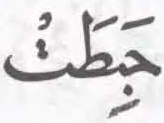 حَبِطَتْ